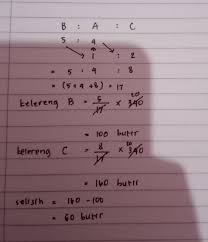 B : A : C
5 : 4
1 : 2
= 5 : 4 : 8
= (5 + 4 + 8) = 17
kelereng B = 5/17 × 340 20
= 100 butir
kelereng C = 8/17 × 340 20
= 160 butir
selisih = 160 - 100
= 60 butir